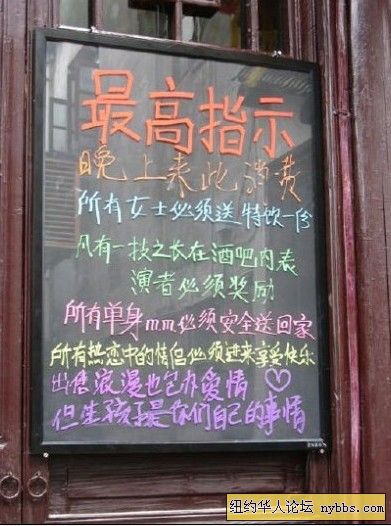 最高指示
晚上来此消费
所有女士必须送特饮一份
凡有一技之长在酒吧内表
演者必须奖励
所有单身mm必须安全送回家
所有热恋中的情侣必须进来享受快乐
出售浪漫也包办爱情
但生孩子是你们自己的事情
纽约华人论坛 nybbs.com